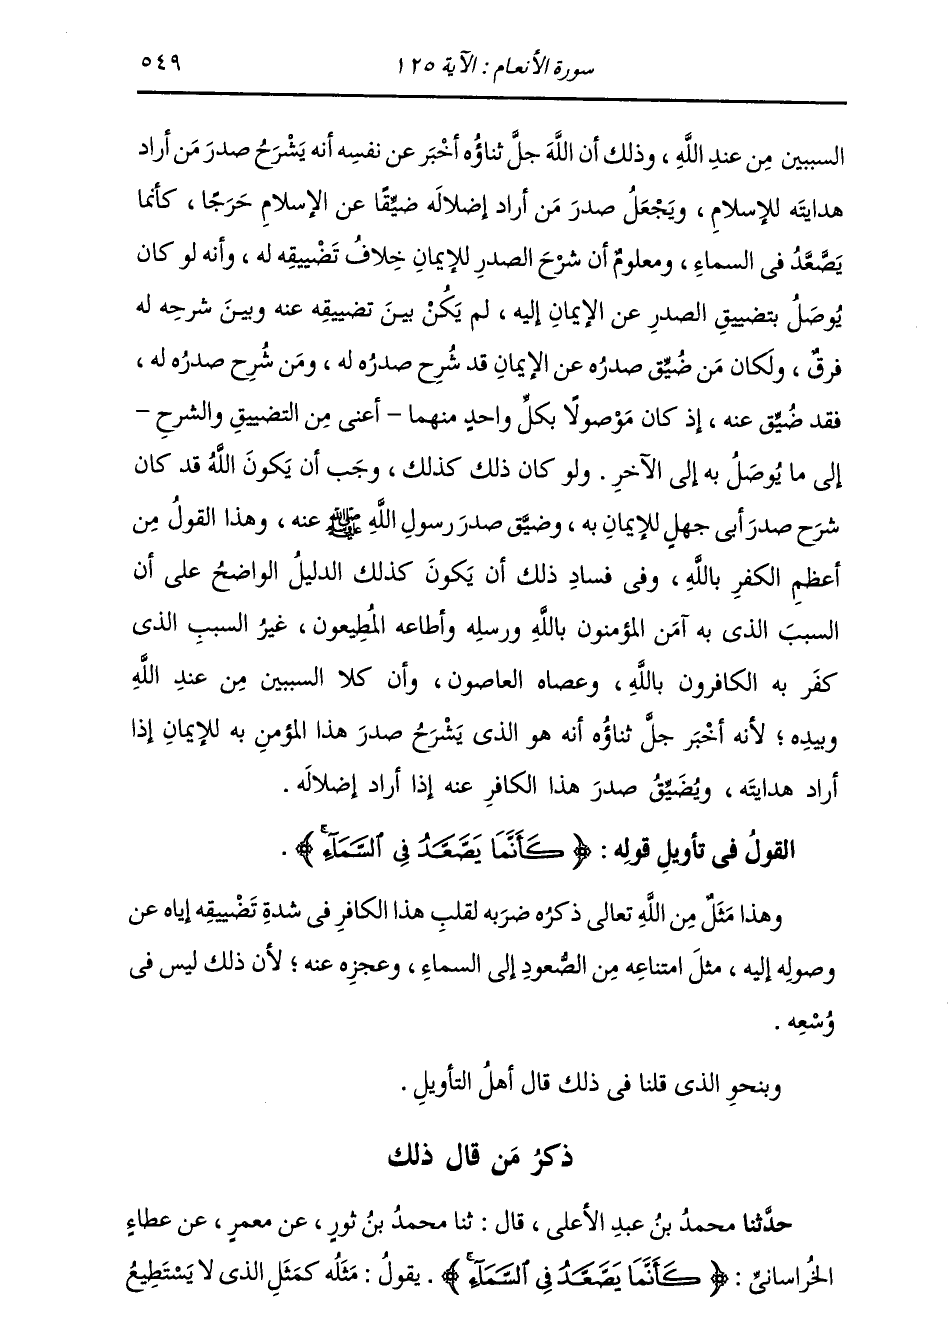 سورة الأنعام : الآية ١٢٥ ٥٤٩
السببين مِن عندِ اللَّهِ ، وذلك أن اللَّهَ جلَّ ثناؤُه أخْبَر عن نفسِه أنه يَشْرَحُ صدرَ مَن أراد
هدايتَه للإسلامِ ، ويَجْعَلُ صدرَ مَن أراد إضلالَه ضيِّقًا عن الإسلامِ حَرَجًا ، كأنما
يَصَّعَّدُ فى السماءِ ، ومعلومٌ أن شَرْحَ الصدرِ للإيمانِ خِلافُ تَضْييقِه له ، وأنه لو كان
يُوصَلُ بتضييقِ الصدرِ عن الإيمانِ إليه ، لم يَكُنْ بينَ تضييقِه عنه وبينَ شرحِه له
فرقٌ ، ولَكان مَن ضُيِّق صدرُه عن الإيمانِ قد شُرِح صدرُه له ، ومَن شُرِح صدرُه له ،
فقد ضُيِّق عنه ، إذ كان مَوْصولًا بكلِّ واحدٍ منهما - أعنى مِن التضييقِ والشرحِ -
إلى ما يُوصَلُ به إلى الآخرِ . ولو كان ذلك كذلك ، وجَب أن يَكونَ اللَّهُ قد كان
شرَح صدرَ أبى جهلٍ للإيمانِ به ، وضيَّق صدرَ رسولِ اللَّهِ ﷺ عنه ، وهذا القولُ مِن
أعظمِ الكفرِ باللَّهِ ، وفى فسادِ ذلك أن يَكونَ كذلك الدليلُ الواضحُ على أن
السببَ الذى به آمَن المؤمنون باللَّهِ ورسلِه وأطاعه المُطِيعون ، غيرُ السببِ الذى
كفَر به الكافرون باللَّهِ ، وعصاه العاصون ، وأن كلا السببين مِن عندِ اللَّهِ
وبيدِه ؛ لأنه أخْبَر جلَّ ثناؤُه أنه هو الذى يَشْرَحُ صدرَ هذا المؤمنِ به للإيمانِ إذا
أراد هدايتَه ، ويُضَيِّقُ صدرَ هذا الكافرِ عنه إذا أراد إضلالَه .
القولُ فى تأويلِ قولِه : ﴿ كَأَنَّمَا يَصَّعَّدُ فِي ٱلسَّمَآءِۚ ﴾ .
وهذا مَثَلٌ مِن اللَّهِ تعالى ذكرُه ضرَبه لقلبِ هذا الكافرِ فى شدةِ تَضْييقِه إياه عن
وصولِه إليه ، مثلَ امتناعِه مِن الصُّعودِ إلى السماءِ ، وعجزِه عنه ؛ لأن ذلك ليس فى
وُسْعِه .
وبنحوِ الذى قلنا فى ذلك قال أهلُ التأويلِ .
ذكرُ مَن قال ذلك
حدَّثنا محمدُ بنُ عبدِ الأعلى ، قال : ثنا محمدُ بنُ ثورٍ ، عن معمرٍ ، عن عطاءٍ
الخُراسانىِّ : ﴿ كَأَنَّمَا يَصَّعَّدُ فِي ٱلسَّمَآءِۚ ﴾ . يقولُ : مَثَلُه كمَثَلِ الذى لا يَسْتَطِيعُ